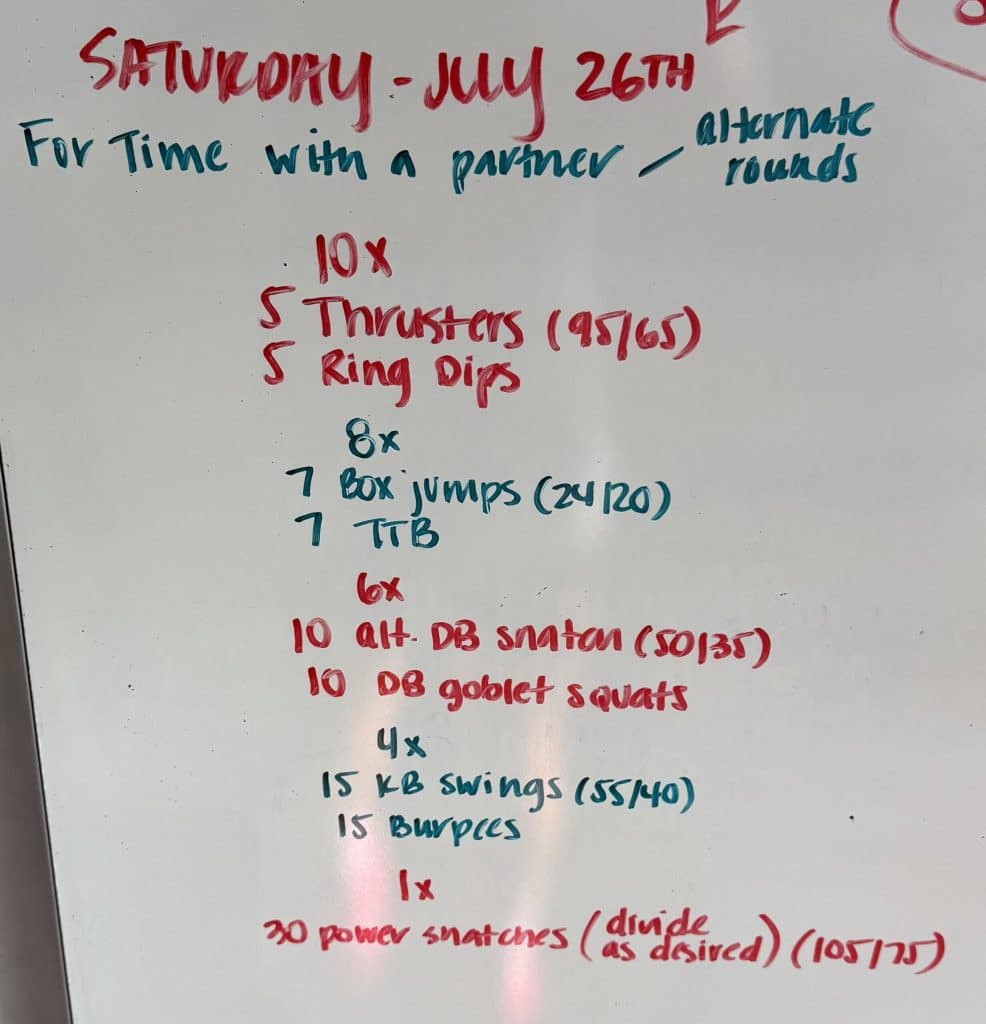 SATURDAY - JULY 26TH
For Time with a partner / alternate rounds
10x
5 Thrusters (95/65)
5 Ring Dips
8x
7 Box jumps (24/20)
7 TTB
6x
10 alt. DB snatch (50/35)
10 DB goblet squats
4x
15 KB swings (55/40)
15 Burpees
1x
30 power snatches (divide as desired) (105/75)